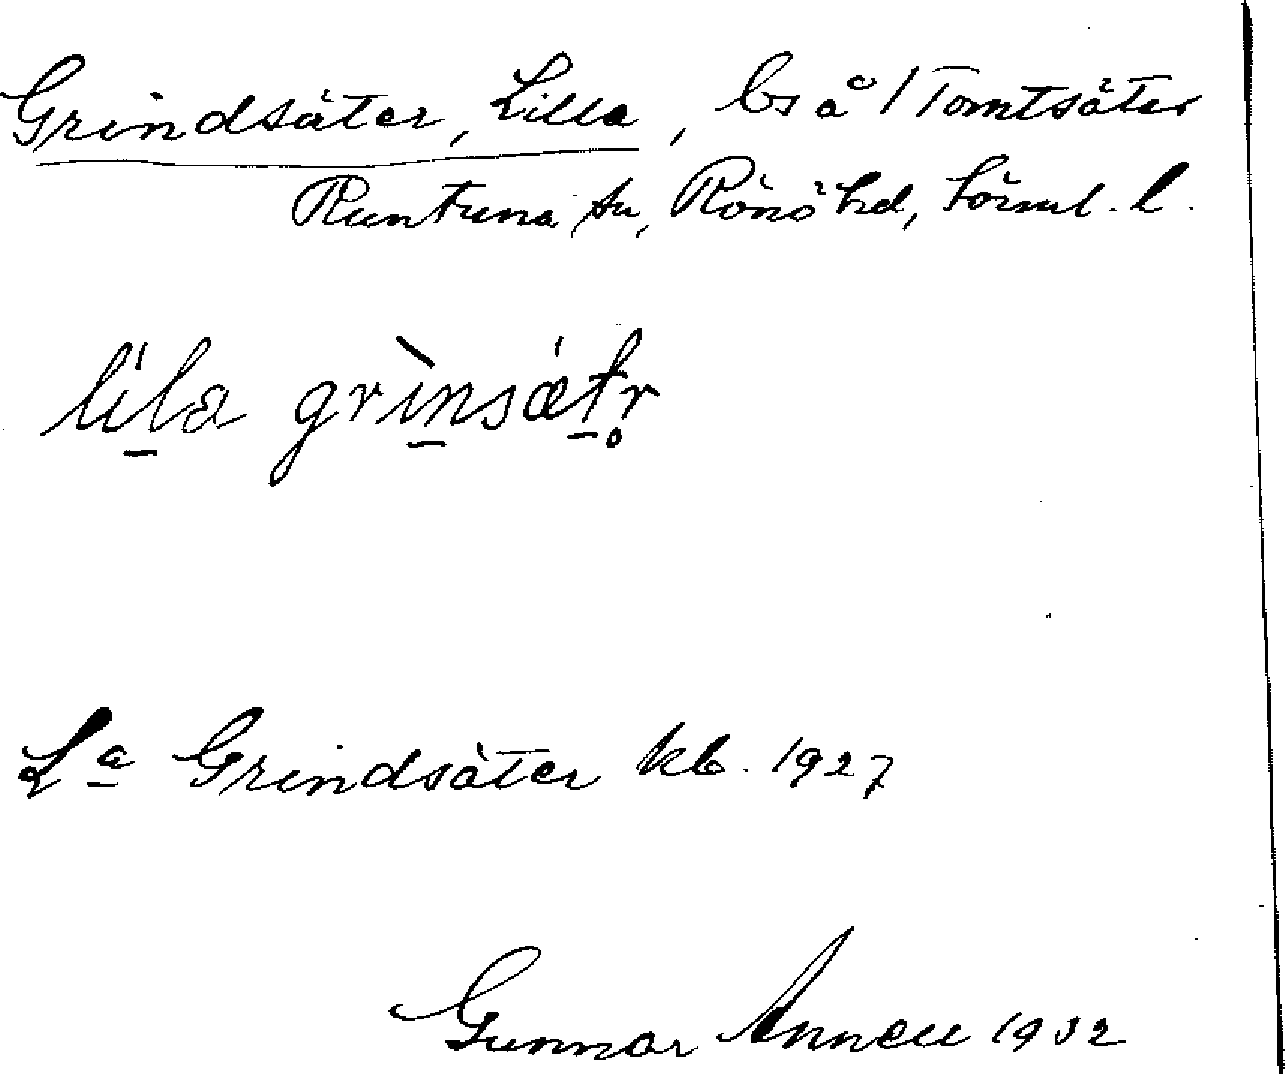 Grindsäter, Lilla, bs å 1 Tomtsäter
Runtuna sn, Rönö hd, Sörml. l.
li̱la grìṉsæ̀ṯr̥
Lª Grindsäter kb. 1927
Gunnar Annell 1932